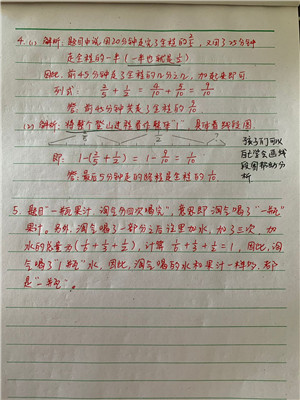 4.(1) 解析:题目中说用20分钟走完了全程的2/5,又用了25分钟
走全程的一半(一半也就是1/2)
因此 前45分钟走了全程的几分之几,加起来即可
列式: 2/5 + 1/2 = 4/10 + 5/10 = 9/10
答:前45分钟共走了全程的9/10
(2) 解析:将整个登山过程看作整体"1",具体看线段图
2/5 1/2 ?
孩子们可以
自己学会画线
段图帮助分
析
即: 1-(2/5+1/2)=1-9/10=1/10
答:最后5分钟走的路程是全程的1/10
5. 题目"一瓶果汁,淘气分四次喝完",意思即淘气喝了"一瓶"
果汁。另外,淘气喝了一部分之后往里加水,加了三次,加
水的总量为(1/6+1/3+1/2),计算1/6+1/3+1/2=1,因此,淘
气喝了"1瓶"水,因此,淘气喝的水和果汁一样多,都
是"一瓶"。